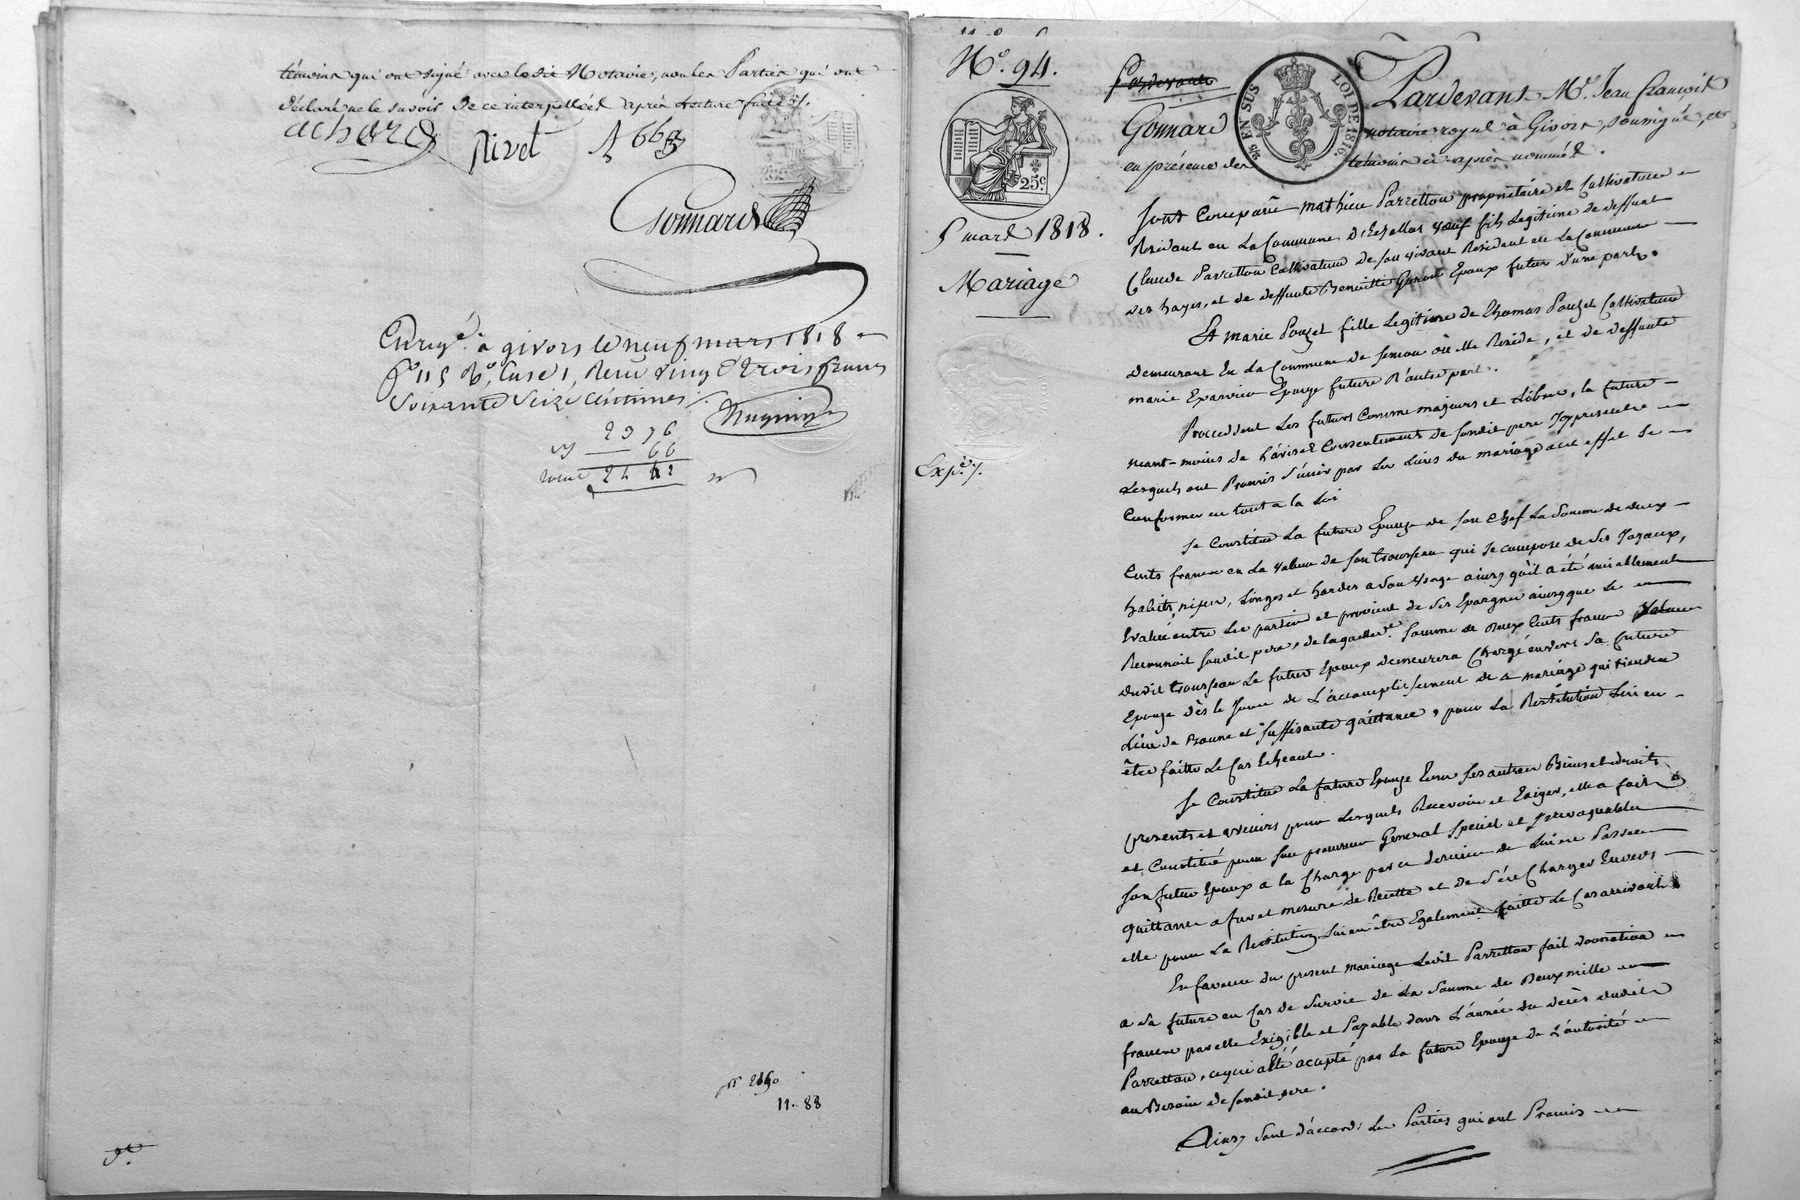 témoins qui ont signé avec ledit Notaire, non les Parties qui ont
déclaré ne le savoir de ce interpellées après lecture faite ./.
achard
Rivet
Gonnard
Enregé. à givors le neuf mars 1818
fo 115 Ro, Case 1, Reçu vingt trois francs
Soixante Seize centimes
23 76
66
2460
11.. 88
No. 94.
25c.
5 mars 1818.
Mariage
Expé./.
2/5 EN SUS
LOI DE 1816.
Pardevant
Pardevant Me. Jean françois
Gonnard notaire royal à Givors, soussigné, et
en présence des témoins ci-après nommés.
Sont Comparus Mathieu Parretton propriétaire et Cultivateur
Résidant en La Commune d'Echallas veuf fils Legitime de deffunt
Claude Parretton Cultivateur de son vivant Résident en La Commune
des hayes, et de deffunte Benoitte Epoux futur d'une part.
Et marie Pouzet fille Legitime de Thomas Pouzet Cultivateur
demeurant En La Commune de où elle Réside, et de deffunte
marie Epouze future d'autre part.
Procedent Les futurs Comme majeurs et Libres, la future
neant-moins de L'avis et Consentement de sondit pere Icy présent
Lesquels ont Promis s'unir par Les Liens du mariage a cet effet se
Conformer en tout a la Loi
Se Constitue La future Epouze de son Chef La Somme de deux
Cents francs en La valeur de son trousseau qui se compose de ses Joyaux,
habits, nipes, Linges et hardes a son usage ainsy qu'il a été amiablement
Evalué entre Les parties et provient de ses Epargnes ainsy que Le
Reconnoit sondit pere, de laquelle Somme de Deux Cents francs valeur
dudit trousseau Le futur Epoux demeurera Chargé envers Sa future
Epouze dès le Jour de L'accomplissement de ce mariage qui tiendra
Lieu de Bonne et Suffisante quittance, pour La Restitution Lui en
être faitte Le Cas Echeant.
Se Constitue La future Epouze tous ses autres Biens et droits
presents et avenirs pour Lesquels Recevoir et Exiger, elle a fait
et Constitué pour son procureur Général Spécial et Irrévoquable
son futur Epoux a la Charge par ce dernier de Lui en Passer
quittance a fur et mesure de Recette et de s'en Charger Envers
elle pour La Restitution Lui en être Egalement faitte Le Cas arrivant
En faveur du present mariage Ledit Parretton fait donnation
a sa future en Cas de Survie de La Somme de Deux mille
francs par elle Exigible et Payable dans L'année du décès dudit
Parretton, ce qui a été accepté par La future Epouze de L'autorité
au Besoin de sondit pere.
Ainsy sont d'accord Les Parties qui ont Promis